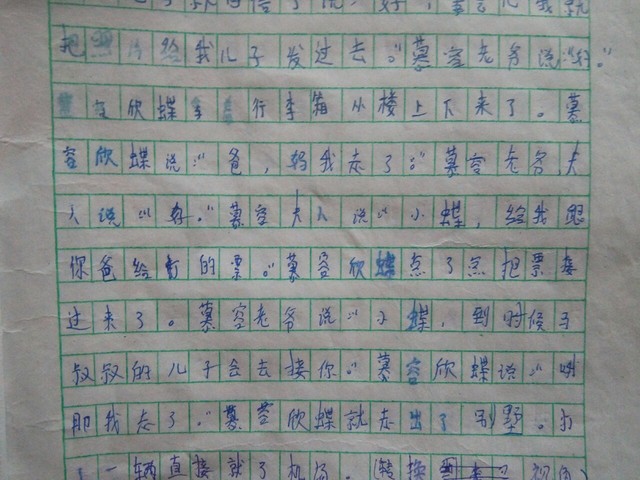 把照片给我儿子发过去。"慕容老爷说"好。"
欣蝶拿行李箱从楼上下来了。慕
容欣蝶说:"爸,妈我走了。"慕容老爷,夫
人说"好。"慕容夫人说"小蝶,给我跟
你爸给订的票。"慕容欣蝶点了点把票接
过来了。慕容老爷说"小蝶,到时候于
叔叔的儿子会去接你。"慕容欣蝶说:"哦
那我走了。"慕容欣蝶就走出了别墅。打
一辆直接就了机场。(转换